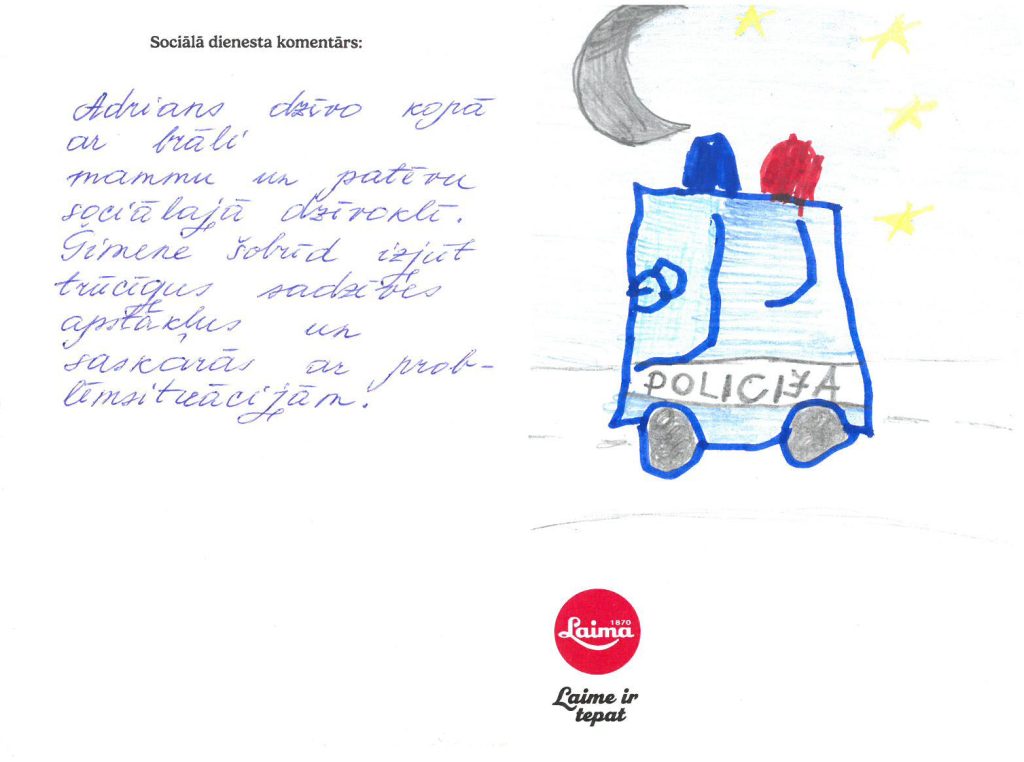 Sociālā dienesta komentārs:
Adrians dzīvo kopā
ar brāli
mammu un patēvu
sociālajā dzīvoklī.
Ģimene šobrīd izjūt
trūcīgus sadzīves
apstākļus un
saskarās ar prob-
lēmsituācijām.
POLICIJA
1870
Laima
Laime ir
tepat